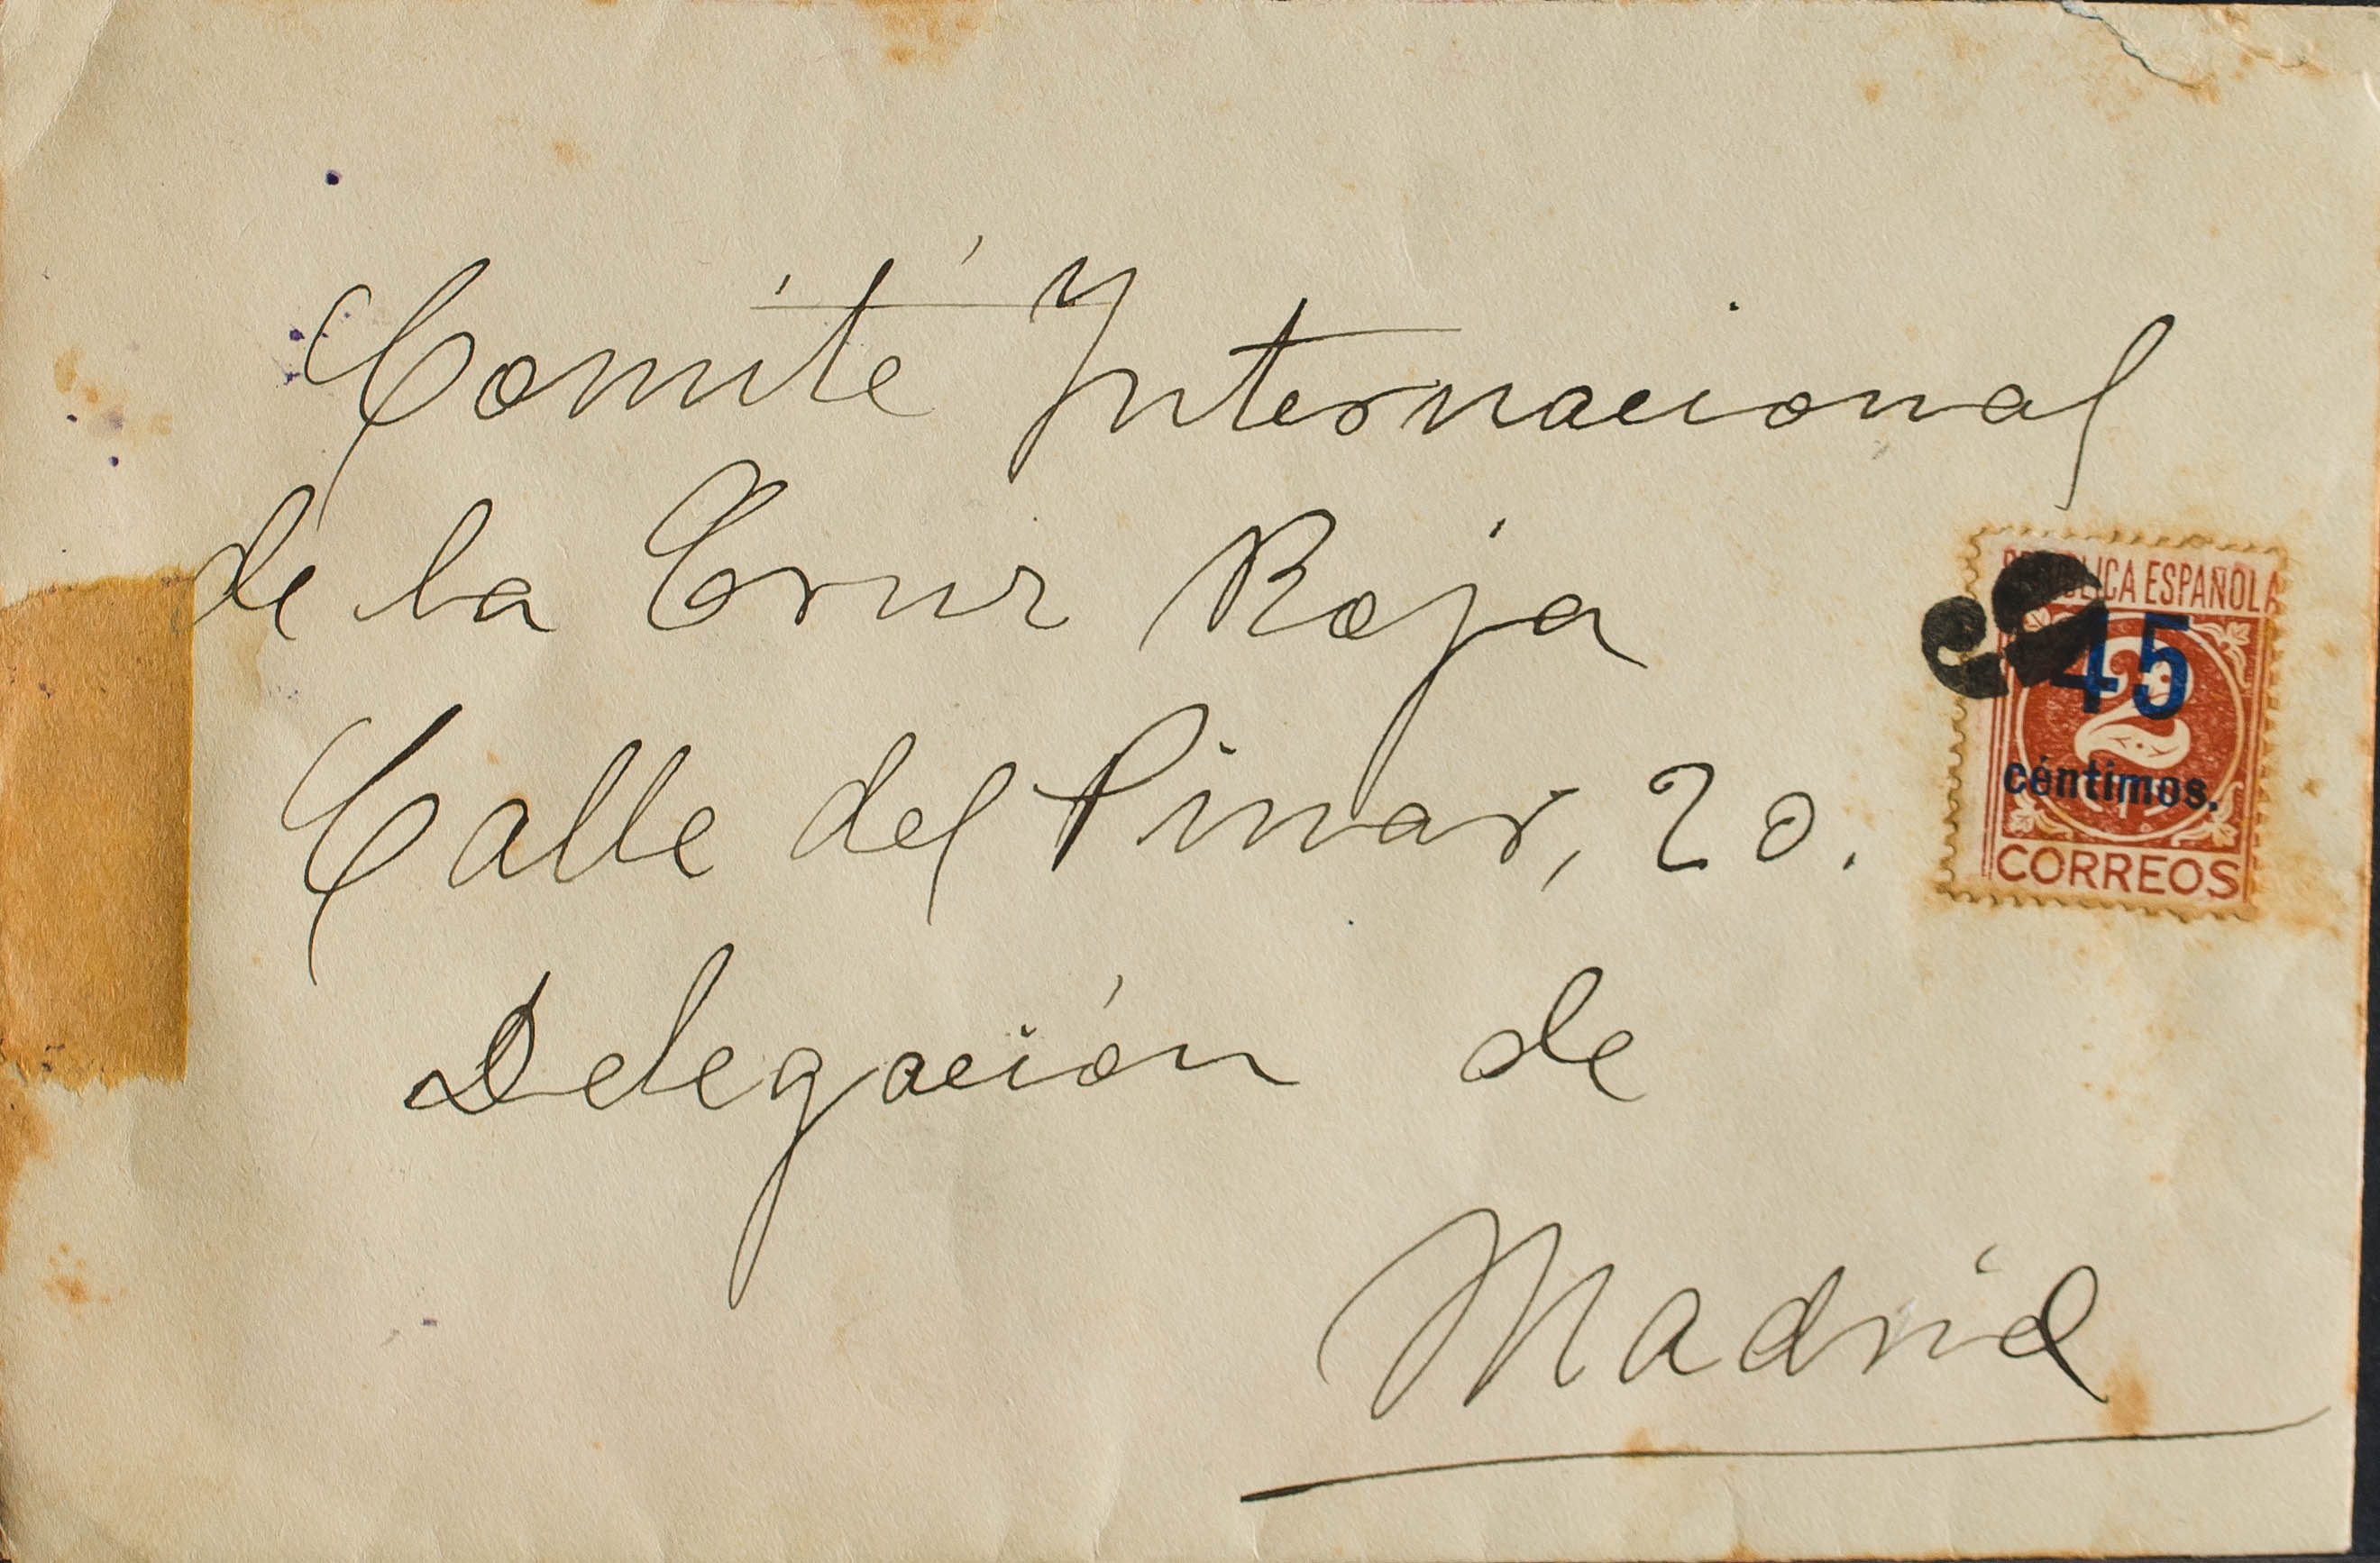 Comité Internacional
de la Cruz Roja
Calle del Pinar, 20.
Delegación de
Madrid
REPÚBLICA ESPAÑOLA
45
2
céntimos.
CORREOS